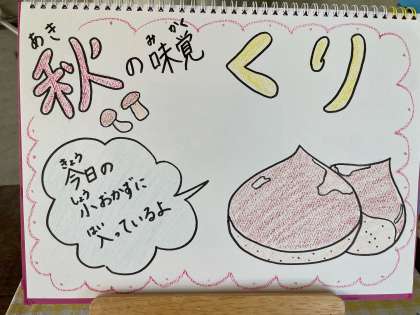 あき みかく
秋の味覚 くり
きょう
今日の
しょう
小おかずに
はい
入っているよ